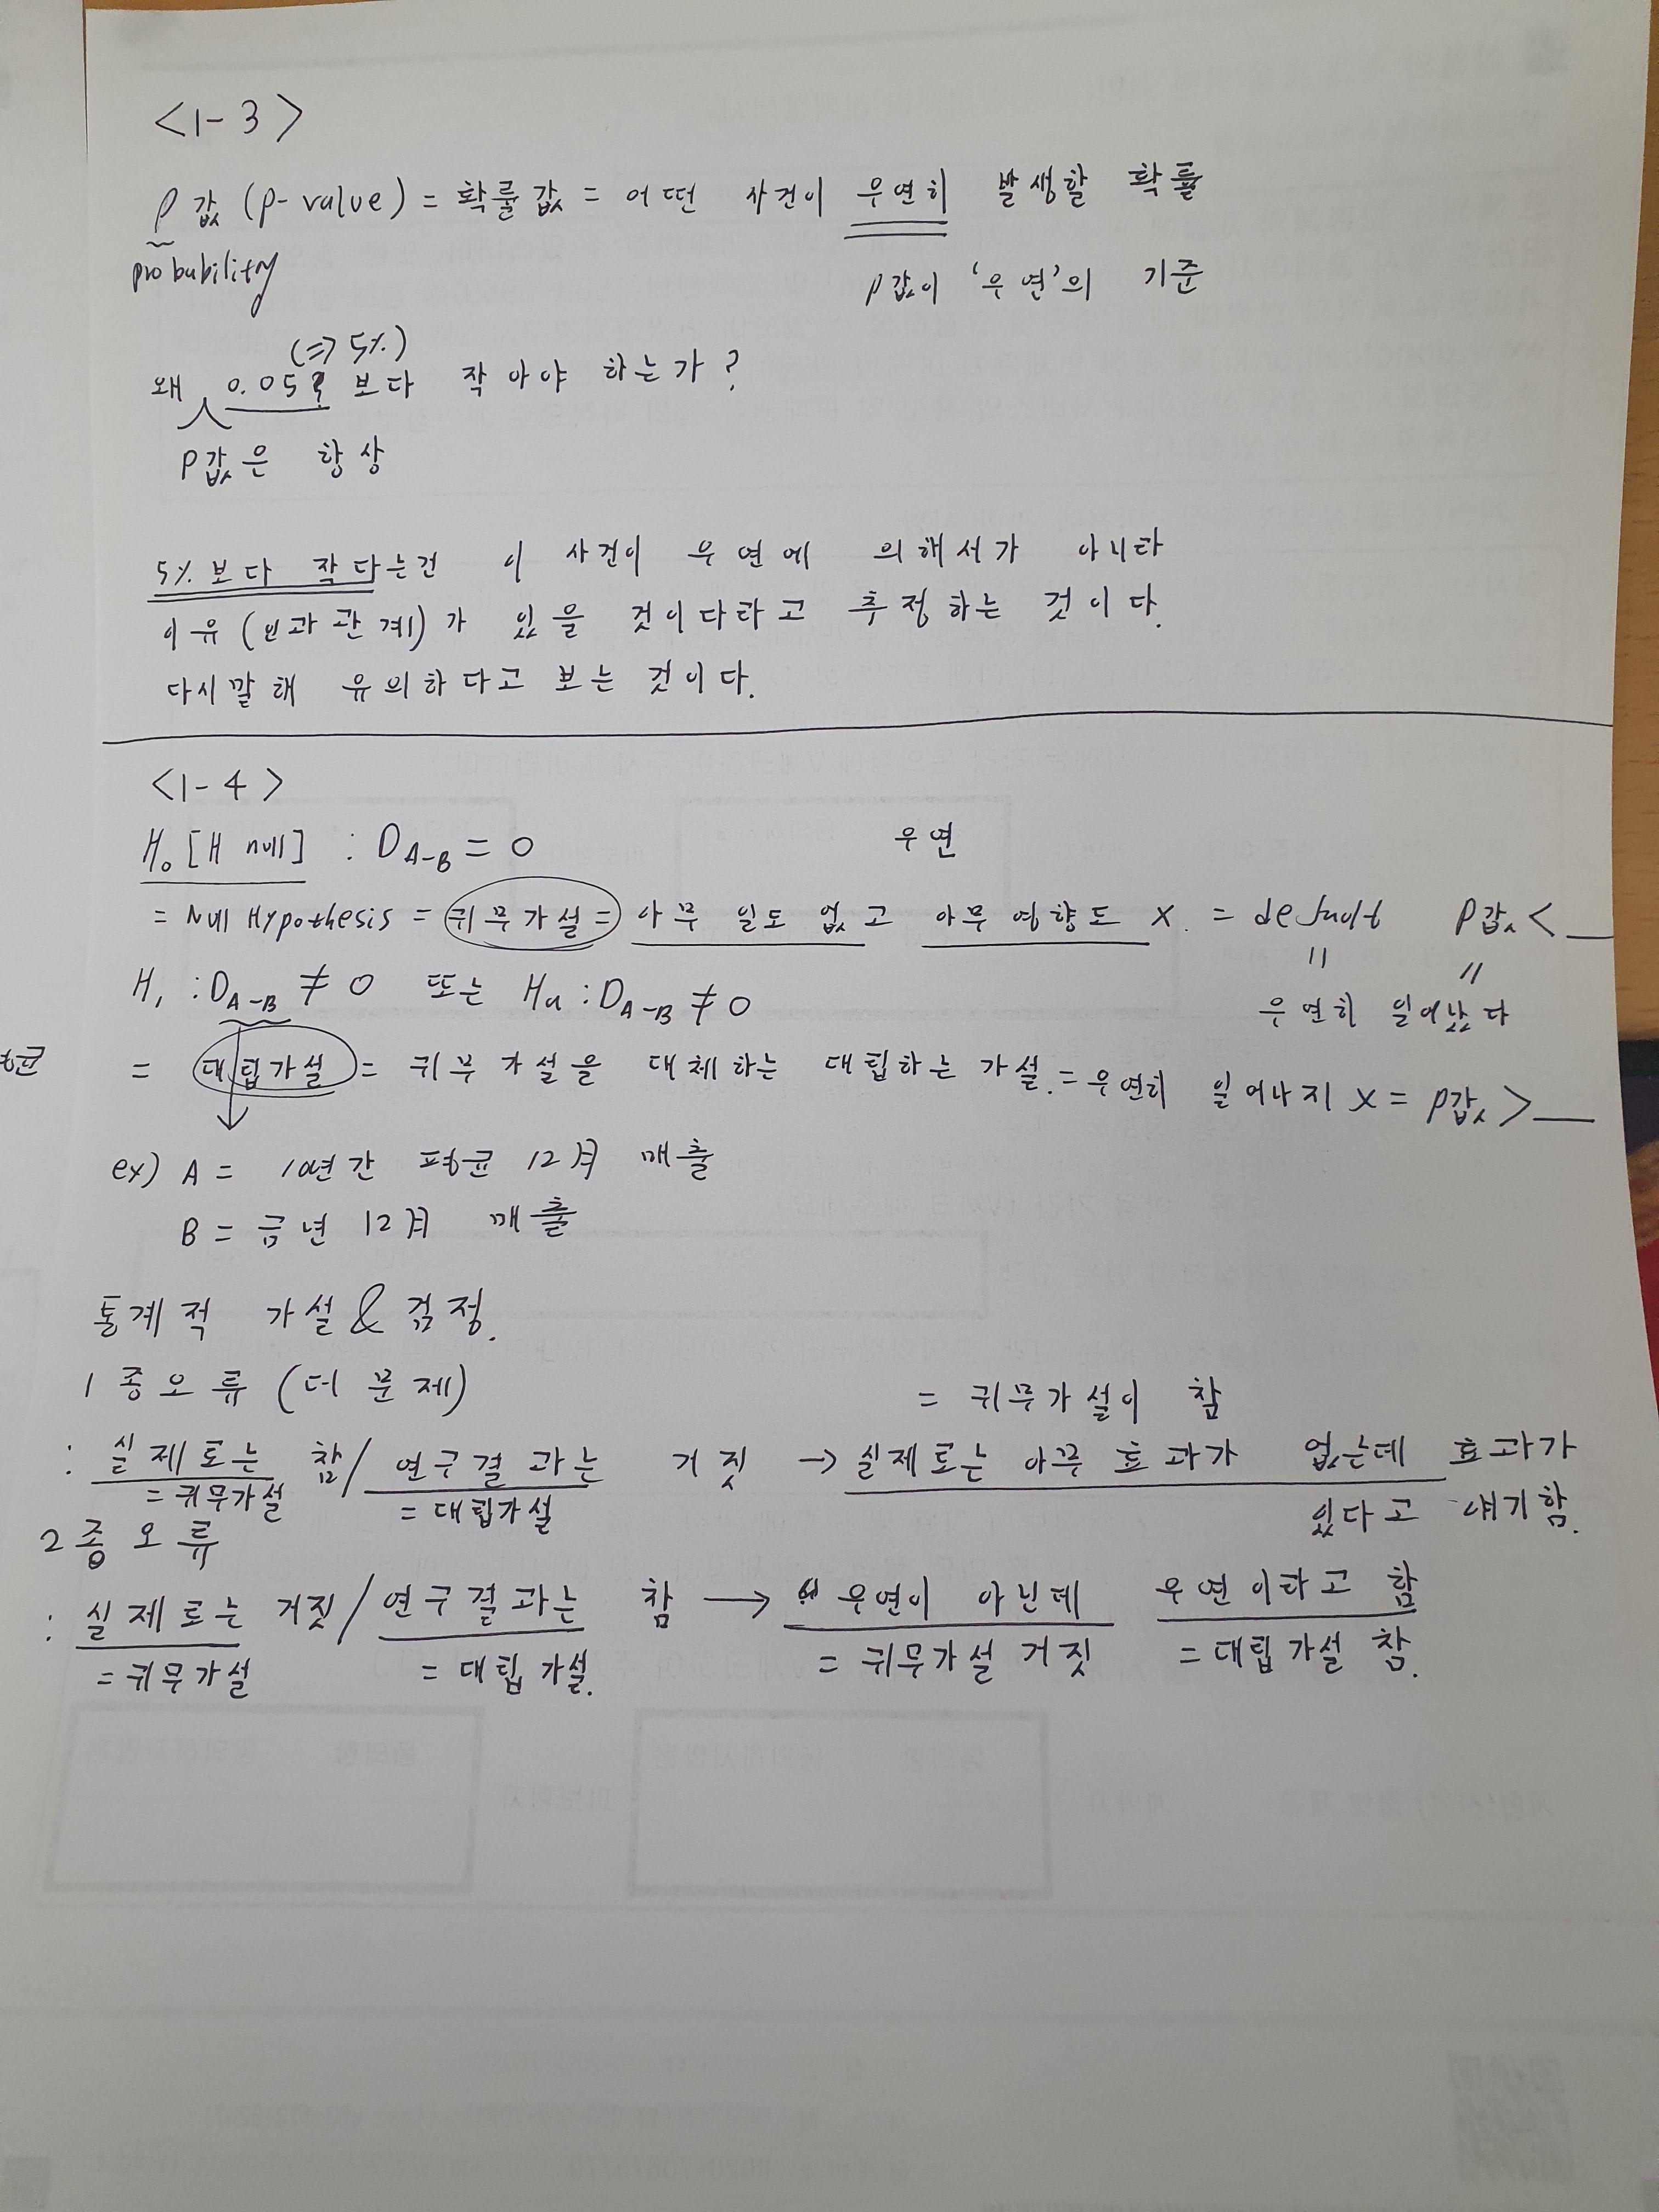 <1-3>
P값 (p-value) = 확률값 = 어떤 사건이 우연히 발생할 확률
probability
P값이 '우연'의 기준
(=> 5%)
왜 0.05 보다 작아야 하는가?
P값은 항상
5%보다 작다는건 이 사건이 우연에 의해서가 아니라
이유 (인과관계)가 있을 것이다라고 추정하는 것이다.
다시말해 유의하다고 보는 것이다.
<1-4>
H₀ [H null] : D A-B = 0
우연
= Null Hypothesis = 귀무가설 = 아무 일도 없고 아무 영향도 x. = default P값 < __
= =
우연히 일어났다
H₁ : D A-B ≠ 0 또는 Ha : D A-B ≠ 0
평균
= 대립가설 = 귀무가설을 대체하는 대립하는 가설. = 우연히 일어나지 x = P값 > __
ex) A = 10년간 평균 12월 매출
B = 금년 12월 매출
통계적 가설 & 검정.
1종오류 (더 문제)
= 귀무가설이 참
: 실제로는 참 / 연구결과는 거짓 → 실제로는 아무 효과가 없는데 효과가
= 귀무가설 = 대립가설 있다고 얘기함.
2종오류
: 실제로는 거짓 / 연구결과는 참 → 우연이 아닌데 우연이라고 함
= 귀무가설 = 대립가설. = 귀무가설 거짓 = 대립가설 참.